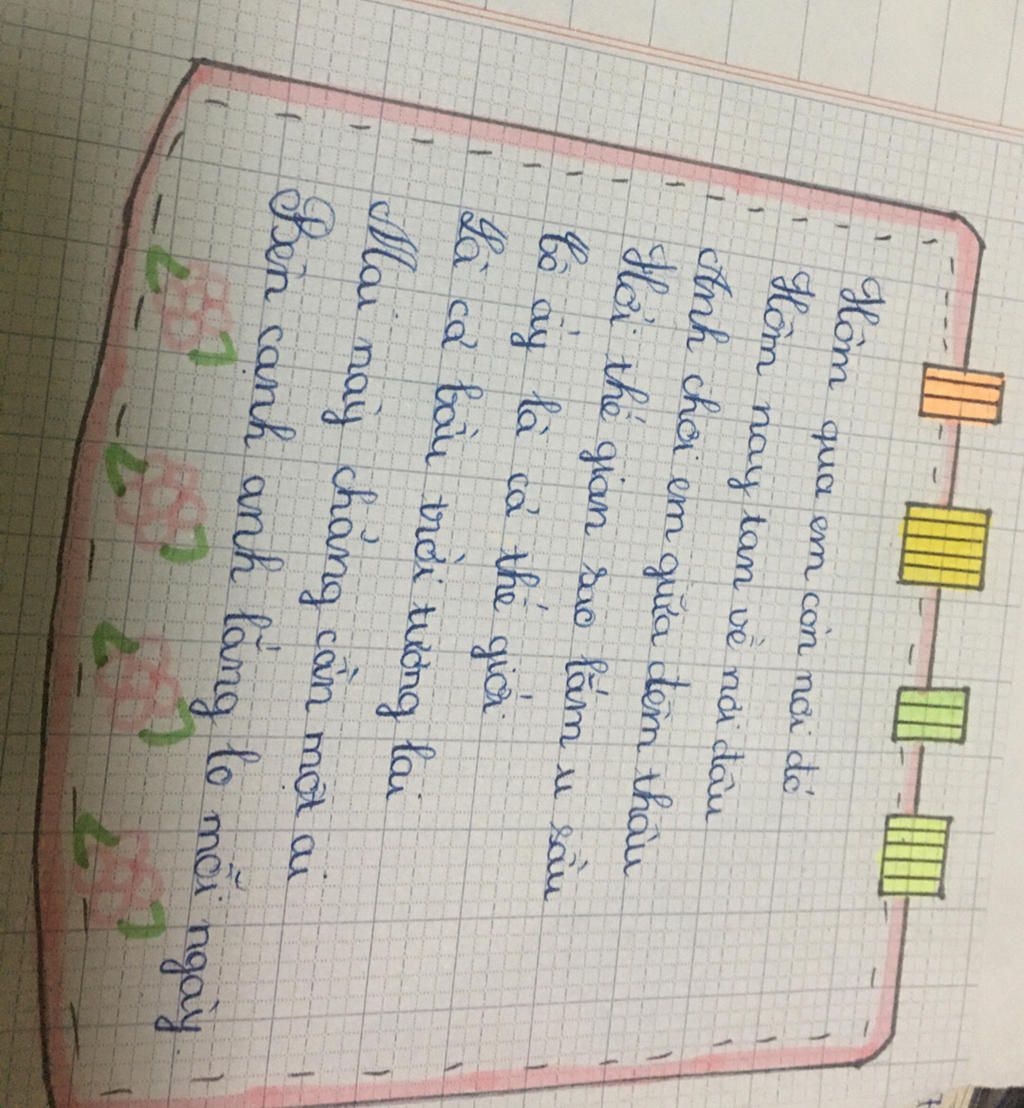 Hôm qua em còn nơi đó
Hôm nay tan về nơi đâu
Anh chơi em giữa đêm thâu
Hỏi thế gian sao lắm u sầu
Cô ấy là cả thế giới
Là cả bầu trời tương lai
Mai này chẳng cần một ai
Bên cạnh anh lắng lo mỗi ngày.